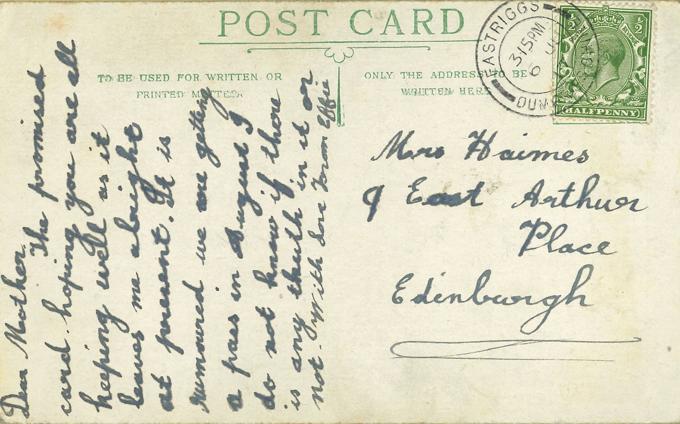 POST CARD
TO BE USED FOR WRITTEN OR
PRINTED MATTER.
ONLY THE ADDRESS TO BE
WRITTEN HERE
EASTRIGGS
3.15PM
6 JU
DUM
HALFPENNY
Dear Mother
The promised
card hoping you are all
keeping well as it
leaves me alright
at present. It is
rumoured we are getting
a pass in August I
do not know if there
is any truth in it or
not. With love from Effie
Mrs Haimes
9 East Arthur
Place
Edinburgh